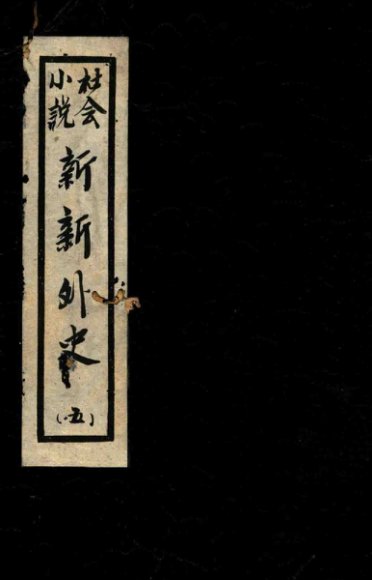 社会
小說
新新外史
（五）